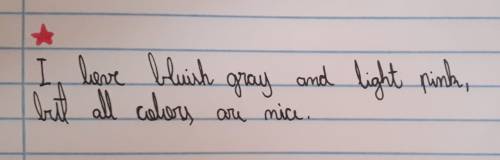 I love bluish gray and light pink,
but all colors are nice.